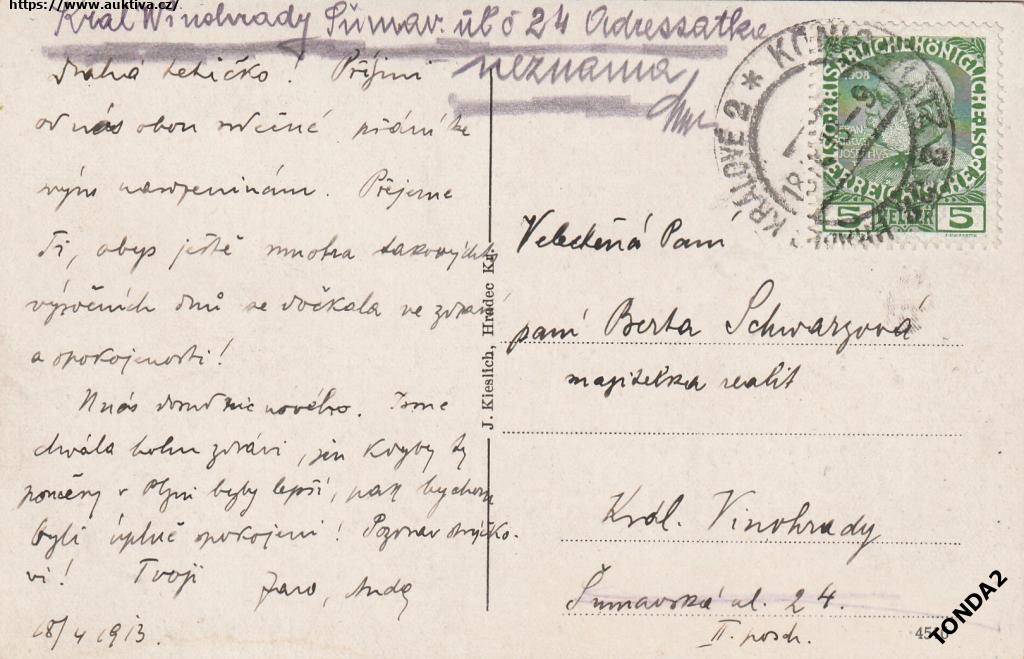 https://www.auktiva.cz/
Král Winohrady Šumav. ul č 24 Adressatka
neznama
Drahá tetičko! Přijmi
od nás obou srdečné přání ke
svým narozeninám. Přejeme
Ti, abys ještě mnoho takových
výročních dnů se dočkala ve zdraví
a spokojenosti!
U nás dosud nic nového. Jsme
chvála bohu zdrávi, jen kdyby ty
poměry v Plzni byly lepší, pak bychom
byli úplně spokojeni! Pozdrav strýčko-
vi! Tvoji
Jaro,
18/4 1913.
J. Kieslich, Hradec Kr.
KRÁLOVÉ 2 * KÖNIG
1908
5 HELLER 5
Veledtěná Paní
paní Berta Schwarzová
majitelka realit
Král. Vinohrady
Šumavská ul. 24.
II. posch.
TONDA2